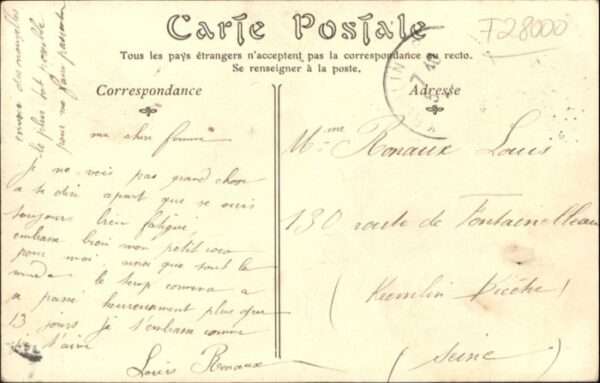 Carte Postale
F28000
Tous les pays étrangers n'acceptent pas la correspondance au recto.
Se renseigner à la poste.
Correspondance
Adresse
envoie des nouvelles
le plus tôt possible
pour ne pas
ma chere femme
je ne vois pas grand chose
a te dire apart que je suis
toujours bien fatigué
embrasse bien mon petit coco
pour moi ainsi que tout le
monde le temp comence a
se passé heureusement plus que
13 jours je t'embrasse comme
je t'aime
Louis Ronaux
Mme Ronaux Louis
130 route de Fontainebleau
(Kremlin Bicêtre)
(Seine)